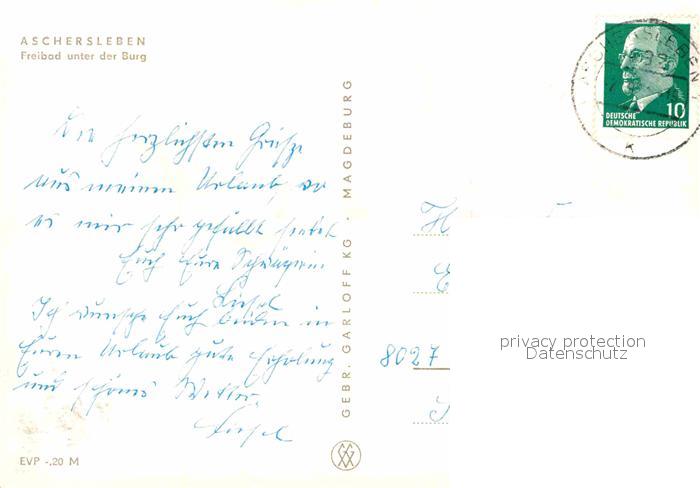 ASCHERSLEBEN
Freibad unter der Burg
Die herzlichsten Grüße
aus meinem Urlaub, wo
es mir sehr gefällt sendet
Euch Eure Schwägerin
Liesel
Ich wünsche Euch beiden in
Eurem Urlaub gute Erholung
und schönes Wetter.
Liesel
EVP -,20 M
GEBR. GARLOFF KG · MAGDEBURG
ASCHERSLEBEN
10
DEUTSCHE
DEMOKRATISCHE REPUBLIK
H
8027
privacy protection
Datenschutz